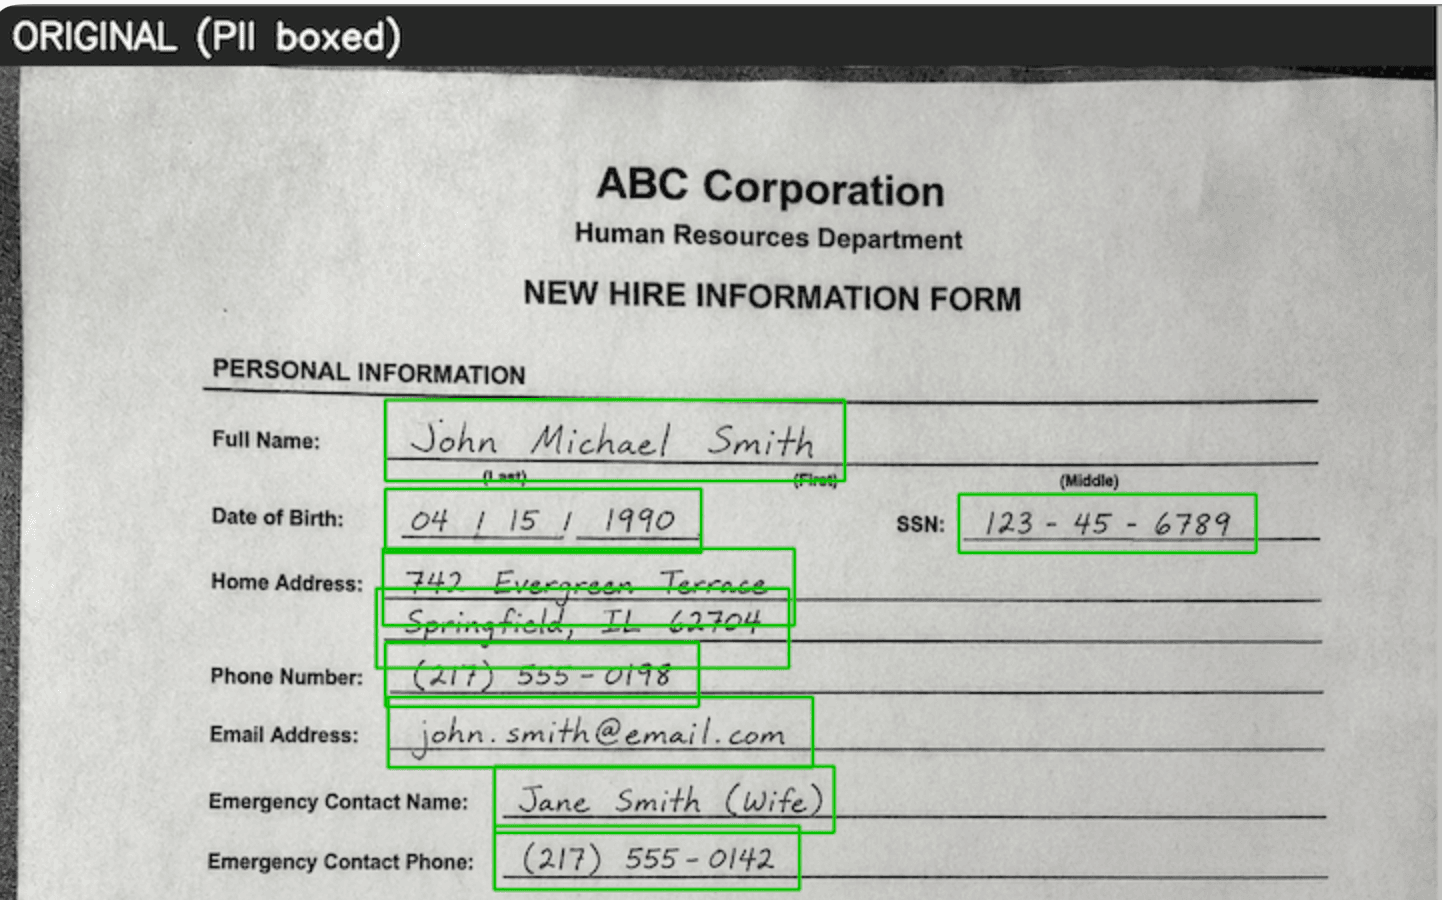 ORIGINAL (PII boxed)
ABC Corporation
Human Resources Department
NEW HIRE INFORMATION FORM
PERSONAL INFORMATION
Full Name: John Michael Smith
(Last) (First) (Middle)
Date of Birth: 04 / 15 / 1990 SSN: 123 - 45 - 6789
Home Address: 742 Evergreen Terrace
Springfield, IL 62704
Phone Number: (217) 555-0198
Email Address: john.smith@email.com
Emergency Contact Name: Jane Smith (Wife)
Emergency Contact Phone: (217) 555-0142